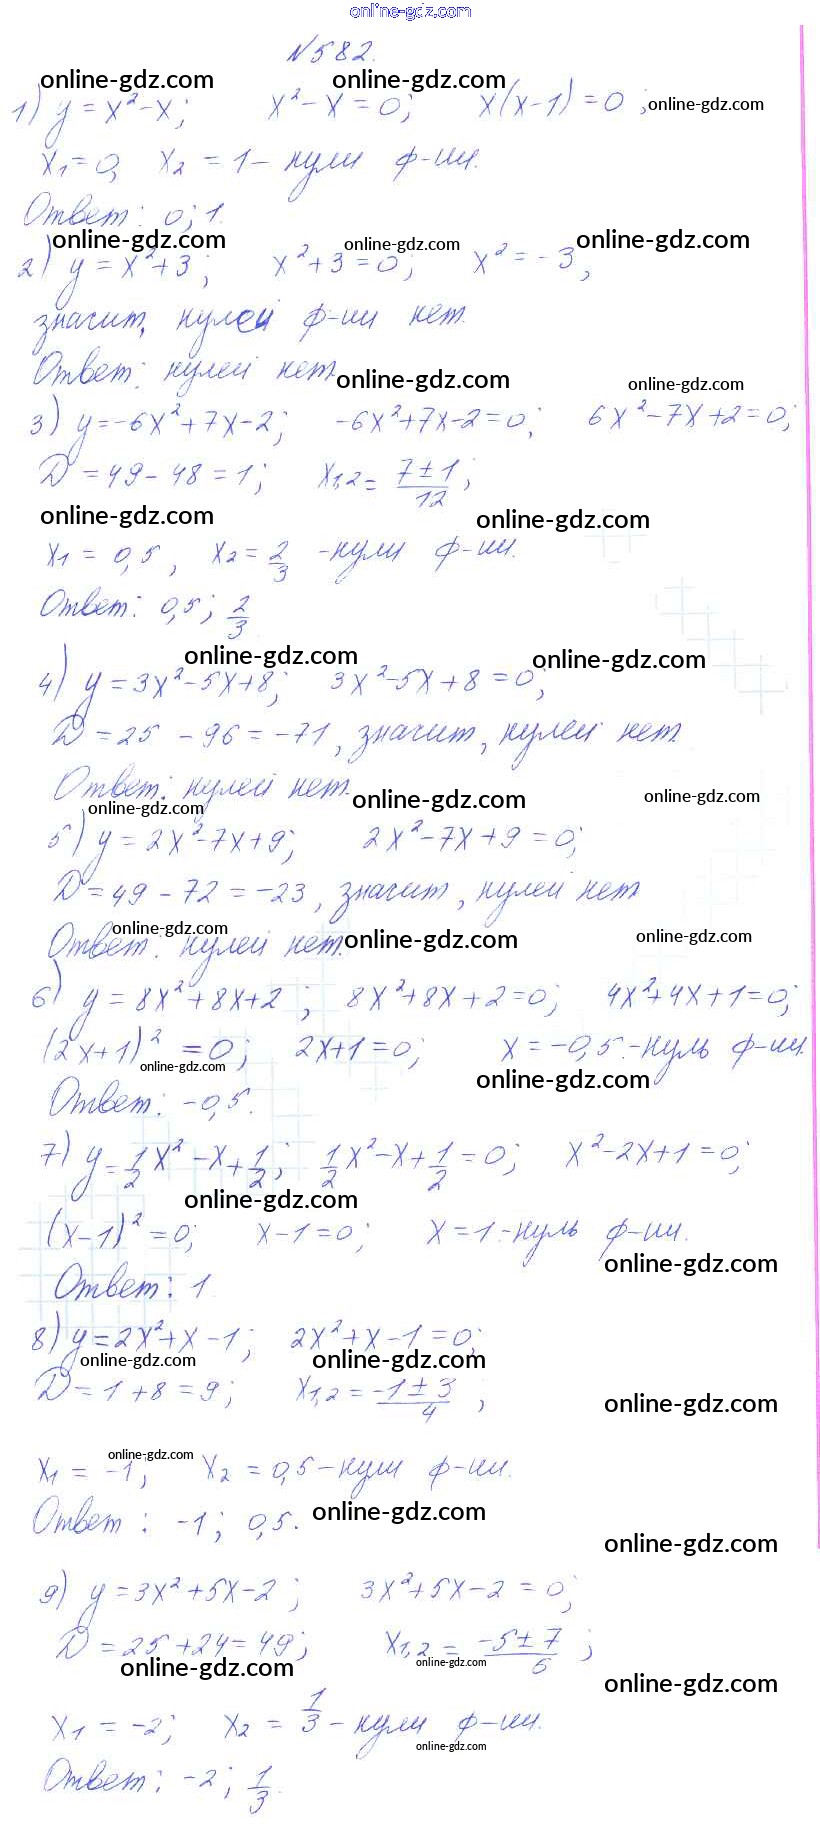 online-gdz.com
№582.
online-gdz.com online-gdz.com
1) y = x² - x; x² - x = 0; x(x-1) = 0; online-gdz.com
x₁ = 0, x₂ = 1 - нули ф-ии.
Ответ: 0; 1.
online-gdz.com online-gdz.com online-gdz.com
2) y = x² + 3; x² + 3 = 0; x² = -3,
значит, нулей ф-ии нет.
Ответ: нулей нет.
online-gdz.com online-gdz.com
3) y = -6x² + 7x - 2; -6x² + 7x - 2 = 0; 6x² - 7x + 2 = 0;
D = 49 - 48 = 1; x₁,₂ = (7 ± 1)/12;
online-gdz.com online-gdz.com
x₁ = 0,5, x₂ = 2/3 - нули ф-ии.
Ответ: 0,5; 2/3
online-gdz.com online-gdz.com
4) y = 3x² - 5x + 8; 3x² - 5x + 8 = 0;
D = 25 - 96 = -71, значит, нулей нет.
Ответ: нулей нет.
online-gdz.com online-gdz.com online-gdz.com
5) y = 2x² - 7x + 9; 2x² - 7x + 9 = 0;
D = 49 - 72 = -23, значит, нулей нет
online-gdz.com
Ответ: нулей нет. online-gdz.com online-gdz.com
6) y = 8x² + 8x + 2; 8x² + 8x + 2 = 0; 4x² + 4x + 1 = 0;
(2x+1)² = 0; 2x+1 = 0; x = -0,5. - нуль ф-ии.
online-gdz.com online-gdz.com
Ответ: -0,5.
7) y = 1/2 x² - x + 1/2; 1/2 x² - x + 1/2 = 0; x² - 2x + 1 = 0;
online-gdz.com
(x-1)² = 0; x - 1 = 0; x = 1. - нуль ф-ии.
online-gdz.com
Ответ: 1
8) y = 2x² + x - 1; 2x² + x - 1 = 0;
online-gdz.com online-gdz.com
D = 1 + 8 = 9; x₁,₂ = (-1 ± 3)/4,
online-gdz.com
online-gdz.com
x₁ = -1, x₂ = 0,5 - нули ф-ии.
Ответ: -1; 0,5. online-gdz.com
online-gdz.com
9) y = 3x² + 5x - 2; 3x² + 5x - 2 = 0;
D = 25 + 24 = 49; x₁,₂ = (-5 ± 7)/6;
online-gdz.com online-gdz.com
online-gdz.com
x₁ = -2; x₂ = 1/3 - нули ф-ии.
online-gdz.com
Ответ: -2; 1/3.